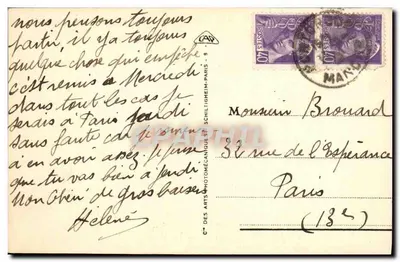 nous pensons toujours
partir, il y a toujours
quelque chose qui empêche
c'est remis à Mercredi
dans tout les cas je
serais à Paris Jeudi
sans faute car je
à en avoir assez je pense
que tu vas bien à jeudi
mon Chéri de gros baisers
Hélène
Cie DES ARTS PHOTOMÉCANIQUES SCHILTIGHEIM-PARIS - 9
40
40
MANCHE
Monsieur Brouard
32 rue de l'Espérance
Paris
(13e)